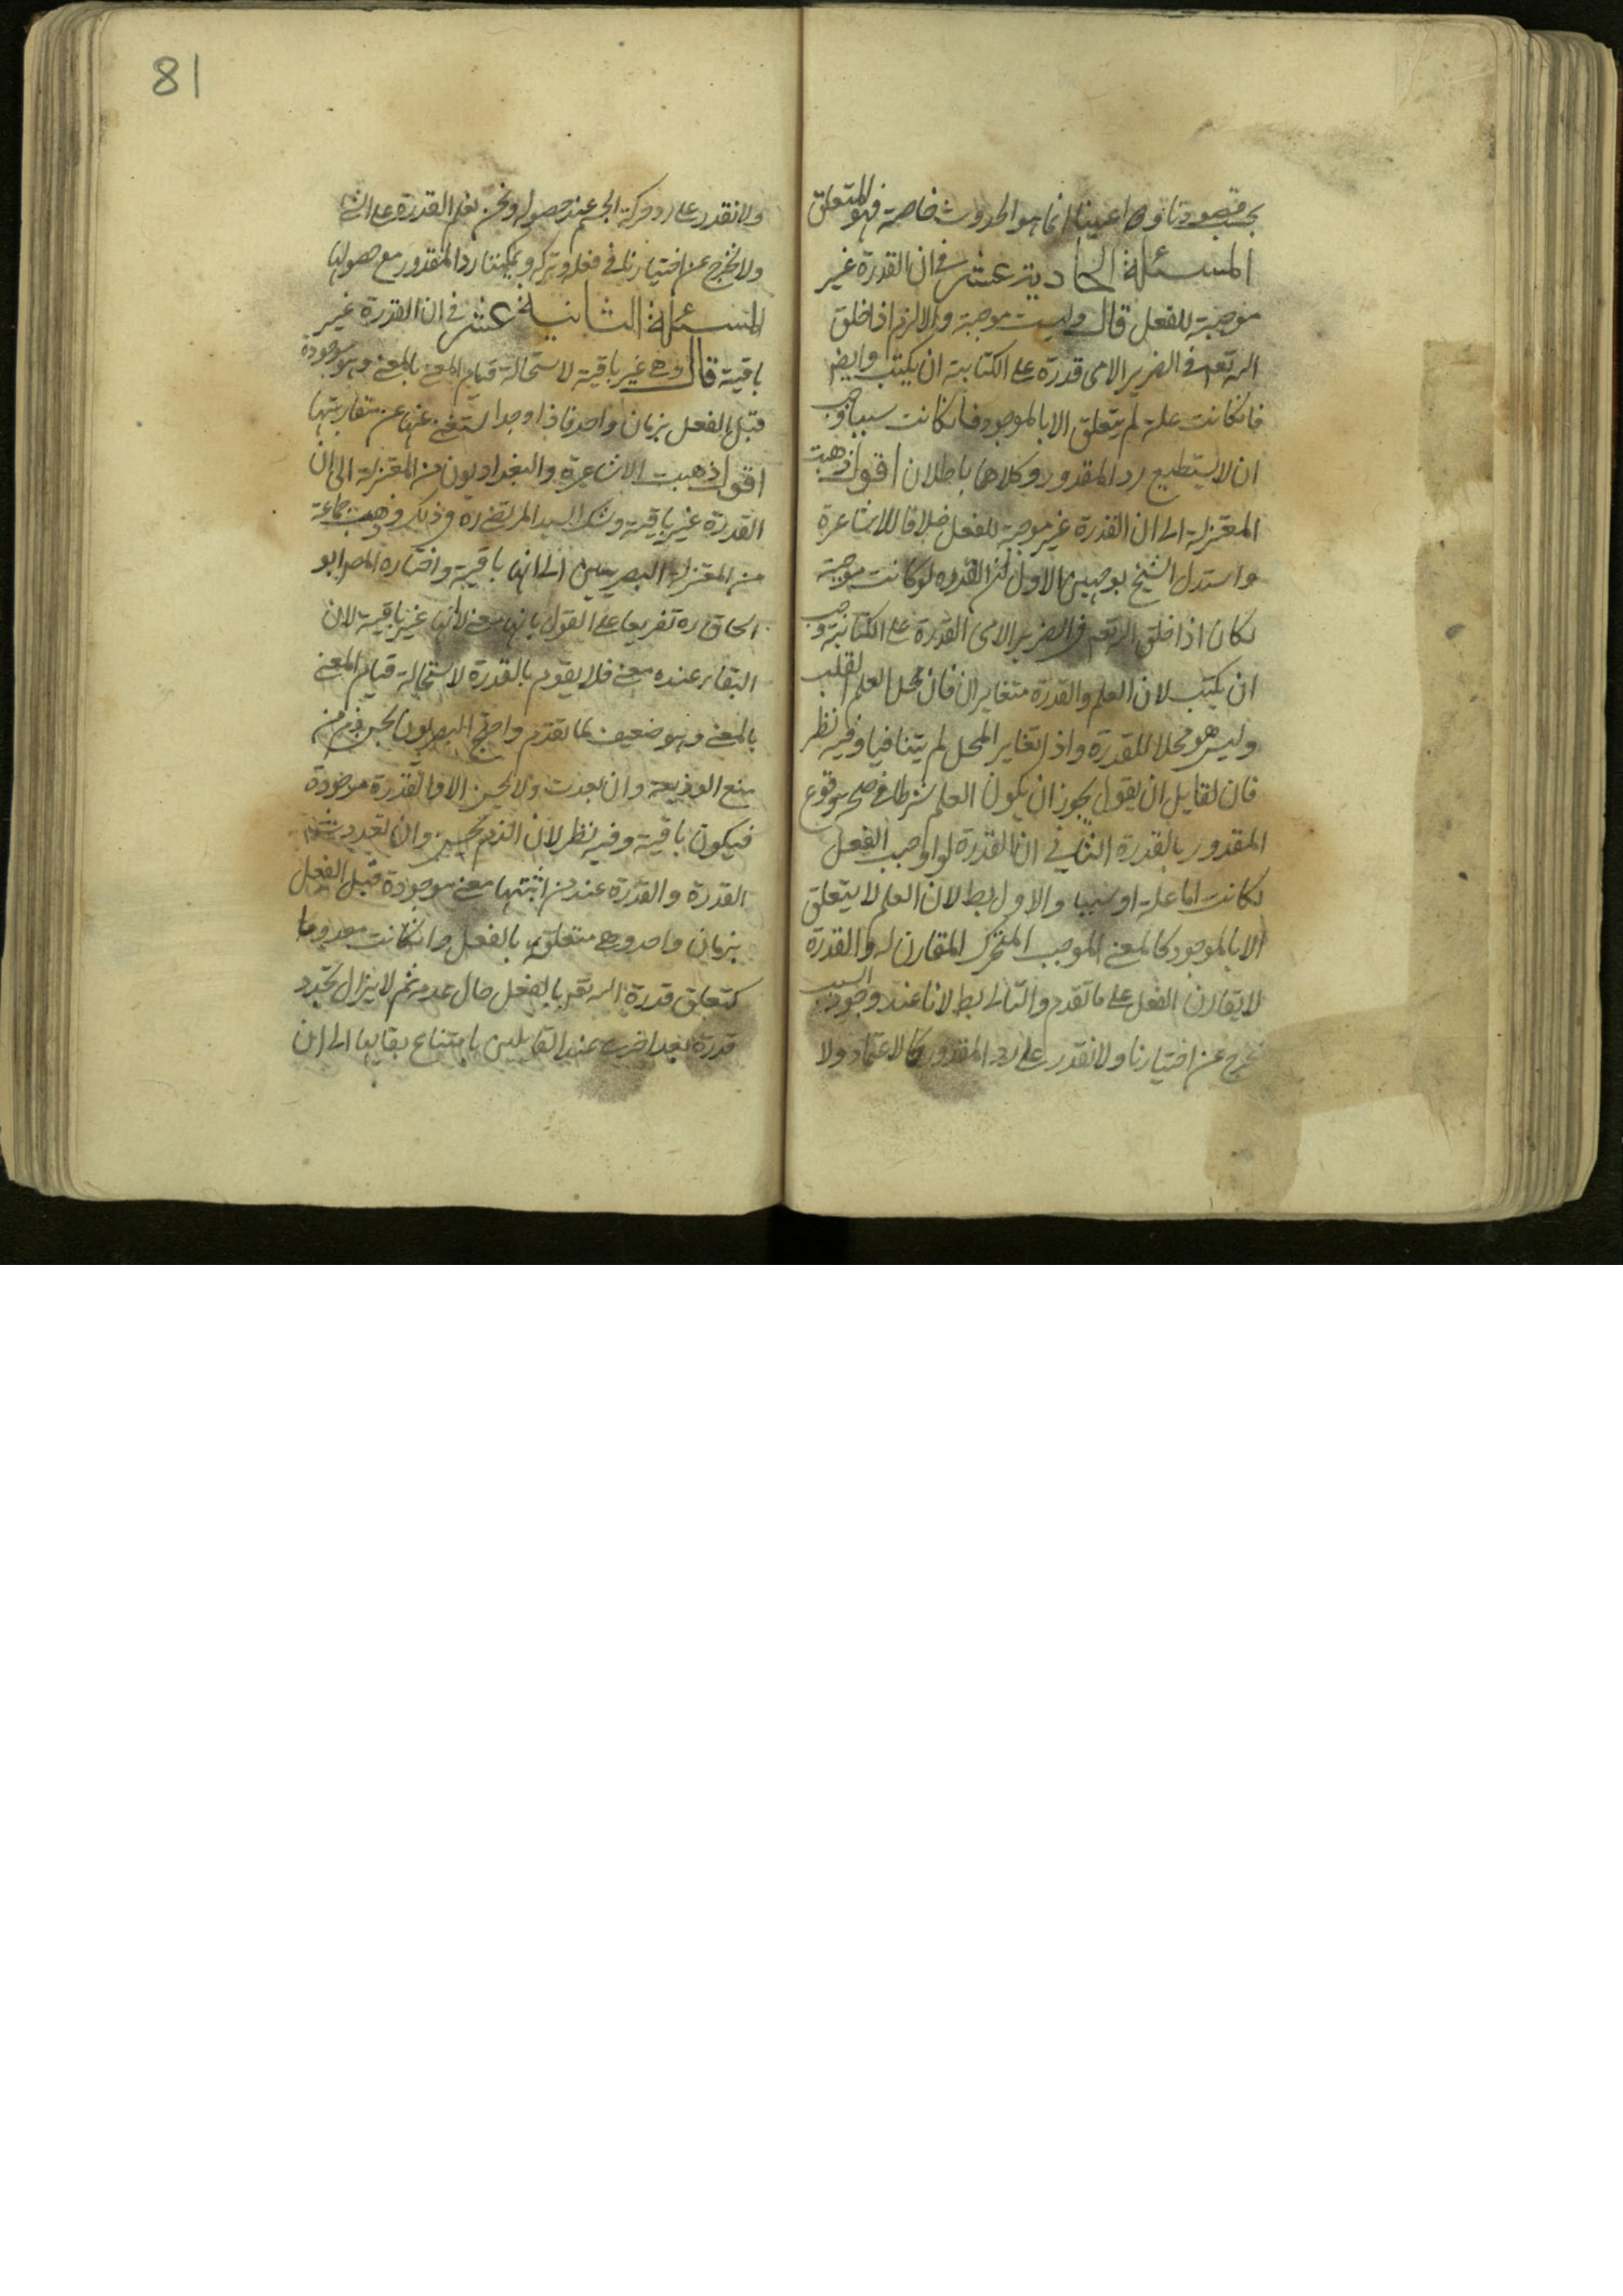 بحسب قصودنا ودواعينا انما هو الحدوث خاصة فهو المتعلق
المسئلة الحادية عشر في ان القدرة غير
موجبة للفعل قال وليست موجبة والا لزم اذا خلق
الله تعم في الضرير الامي قدرة على الكتابة ان يكتب وايضا
فان كانت علة لم يتعلق الا بالموجود فان كانت سببا وجب
ان لا يستطيع رد المقدور وكلاهما باطلان اقول ذهبت
المعتزلة الى ان القدرة غير موجبة للفعل خلافا للاشاعرة
واستدل الشيخ بوجهين الاول ان القدرة لو كانت موجبة
لكان اذا خلق الله تعم في الضرير الامي القدرة على الكتابة وجب
ان يكتب لان العلم والقدرة متغايران فان محل العلم القلب
وليس هو محلا للقدرة واذا تغاير المحل لم يتنافيا وفيه نظر
فان لقايل ان يقول يجوز ان يكون العلم شرطا في صحة وقوع
المقدور بالقدرة الثاني ان القدرة لو اوجب الفعل
لكانت اما علة او سببا والاول بط لان العلم لا يتعلق
الا بالموجود كالمعنى الموجب المتحرك المقارن له والقدرة
لا يقارن الفعل على ما تقدم والتالي بط لانا عند وجود السبب
نخرج عن اختيارنا ولا نقدر على رد المقدور كالاعتماد ولا
81
ولا نقدر على رد حركة الجسم عند حصوله ونحن نعلم القدرة على ان
ولا نخرج عن اختيارنا في فعله وتركه ويمكننا رد المقدور مع حصولها
المسئلة الثانية عشر في ان القدرة غير
باقية قال وهي غير باقية لاستحالة قيام المعنى بالمعنى وهو موجودة
قبل الفعل بزمان واحد فاذا وجد استغنى عنها عن مقارنتها
اقول ذهبت الاشاعرة والبغداديون من المعتزلة الى ان
القدرة غير باقية وشك السيد المرتضى ره في ذلك وذهبت جماعة
من المعتزلة البصريين الى انها باقية واختاره المص ابو
اسحاق ره تفريعا على القول بانها معنى لانها غير باقية لان
البقاء عنده معنى فلا يقوم بالقدرة لاستحالة قيام المعنى
بالمعنى وهو ضعيف لما تقدم واحتج البصريون بحسن ذم من
منع الوديعة وان بعدت ولا يحسن الا والقدرة موجودة
فيكون باقية وفيه نظر لان الذم يحسن وان تعددت
القدرة والقدرة عند من اثبتها معنى موجودة قبل الفعل
بزمان واحد وهي متعلقة بالفعل وان كانت معدوما
كتعلق قدرة الله تعم بالفعل حال عدمه ثم لا يزال تجدد
قدرة بعد اخرى عند القايلين بامتناع بقايها الى ان